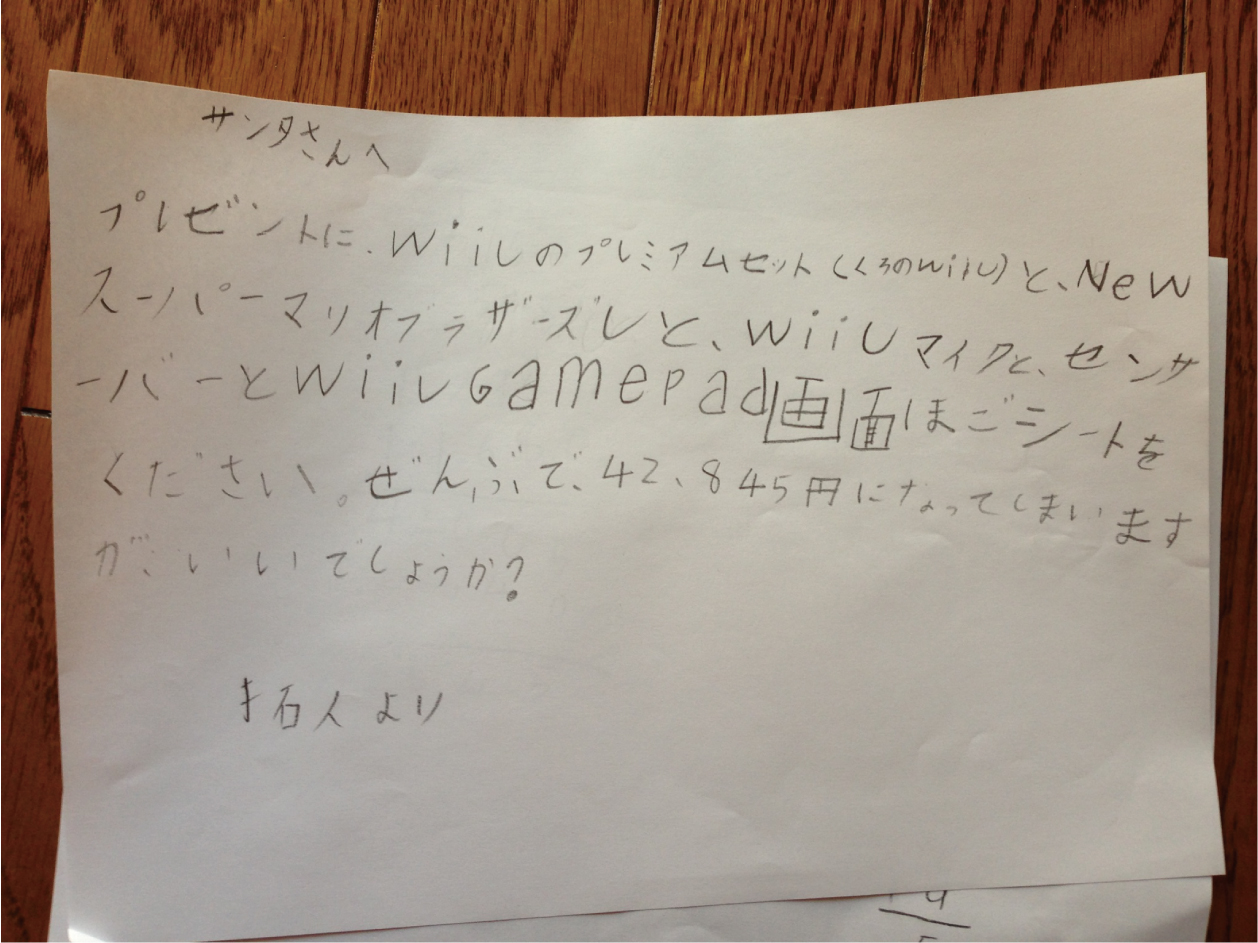 サンタさんへ
プレゼントに、WiiUのプレミアムセット(くろのWiiU)と、New
スーパーマリオブラザーズUと、WiiUマイクと、センサ
ーバーとWiiUGamePad画面ほごシートを
ください。ぜんぶで、42、845円になってしまいます
が、いいでしょうか?
拓人より
4